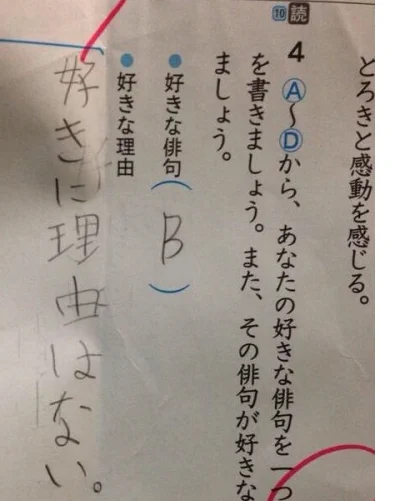 とろきと感動を感じる。
10 読
4 Ⓐ〜Ⓓから、あなたの好きな俳句を一つ
を書きましょう。また、その俳句が好きな
ましょう。
●好きな俳句(B)
●好きな理由
好きに理由はない。